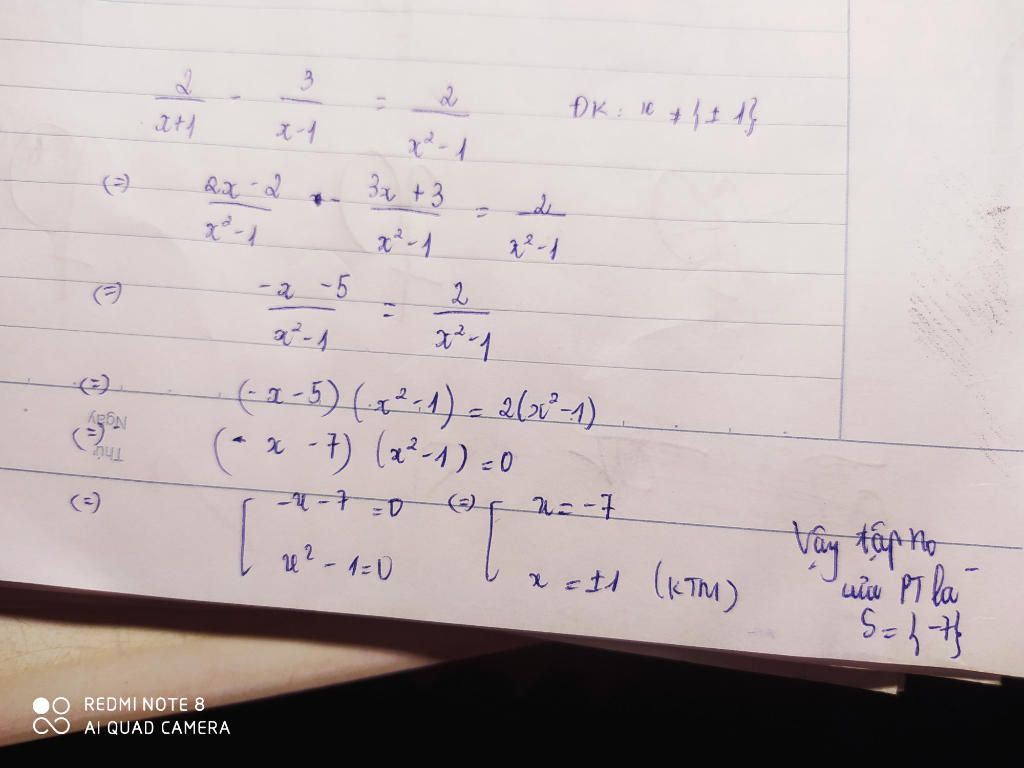 2/(x+1) - 3/(x-1) = 2/(x²-1) ĐK: x ≠ {± 1}
(=) (2x - 2)/(x²-1) - (3x + 3)/(x²-1) = 2/(x²-1)
(=) (-x - 5)/(x²-1) = 2/(x²-1)
(=) (-x-5) (x²-1) = 2(x²-1)
Ngày
Thứ
(=) (-x - 7) (x²-1) = 0
(=) [ -x - 7 = 0 (=) [ x = -7
x² - 1 = 0 x = ±1 (KTM)
Vậy tập no
của PT là
S = {-7}
REDMI NOTE 8
AI QUAD CAMERA